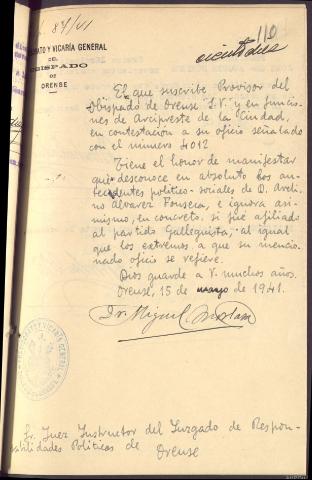 87/41
110
ciento diez
PROVISORATO Y VICARÍA GENERAL
DEL
OBISPADO
DE
ORENSE
El que suscribe Provisor del
Obispado de Orense "S.V." y en funcio-
nes de Arcipreste de la Ciudad,
en contestación a su oficio señalado
con el número 4012
Tiene el honor de manifestar
que desconoce en absoluto los an-
tecedentes político-sociales de D. Aveli-
no Álvarez Fonseca, e ignora asi-
mismo, en concreto, si fué afiliado
al partido Galleguista, al igual
que los extremos a que su mencio-
nado oficio se refiere.
Dios guarde a V. muchos años.
Orense, 15 de mayo de 1941.
Dr. Miguel
Sr. Juez Instructor del Juzgado de Respon-
sabilidades Políticas de Orense